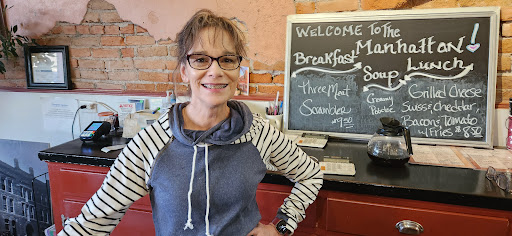 Welcome To The
Manhattan!
Breakfast
Three Meat
Scrambler
$9.50
Soup
Creamy
Potato
Lunch
Grilled Cheese
Swiss, Cheddar,
Bacon & Tomato
w/ Fries $8.50